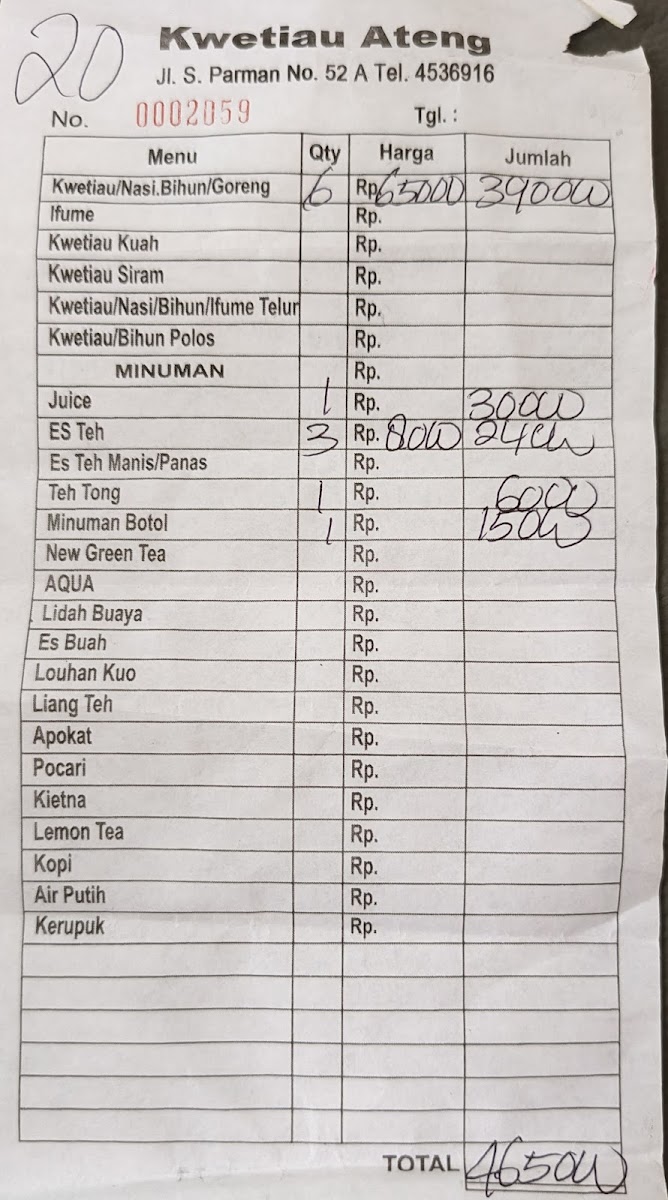 20
Kwetiau Ateng
Jl. S. Parman No. 52 A Tel. 4536916
No. 0002059 Tgl. :
Menu Qty Harga Jumlah
Kwetiau/Nasi.Bihun/Goreng 6 Rp. 65000 390000
Ifume Rp.
Kwetiau Kuah Rp.
Kwetiau Siram Rp.
Kwetiau/Nasi/Bihun/Ifume Telur Rp.
Kwetiau/Bihun Polos Rp.
MINUMAN Rp.
Juice 1 Rp. 30000
ES Teh 3 Rp. 8000 24000
Es Teh Manis/Panas Rp.
Teh Tong 1 Rp. 6000
Minuman Botol 1 Rp. 15000
New Green Tea Rp.
AQUA Rp.
Lidah Buaya Rp.
Es Buah Rp.
Louhan Kuo Rp.
Liang Teh Rp.
Apokat Rp.
Pocari Rp.
Kietna Rp.
Lemon Tea Rp.
Kopi Rp.
Air Putih Rp.
Kerupuk Rp.
TOTAL 465000